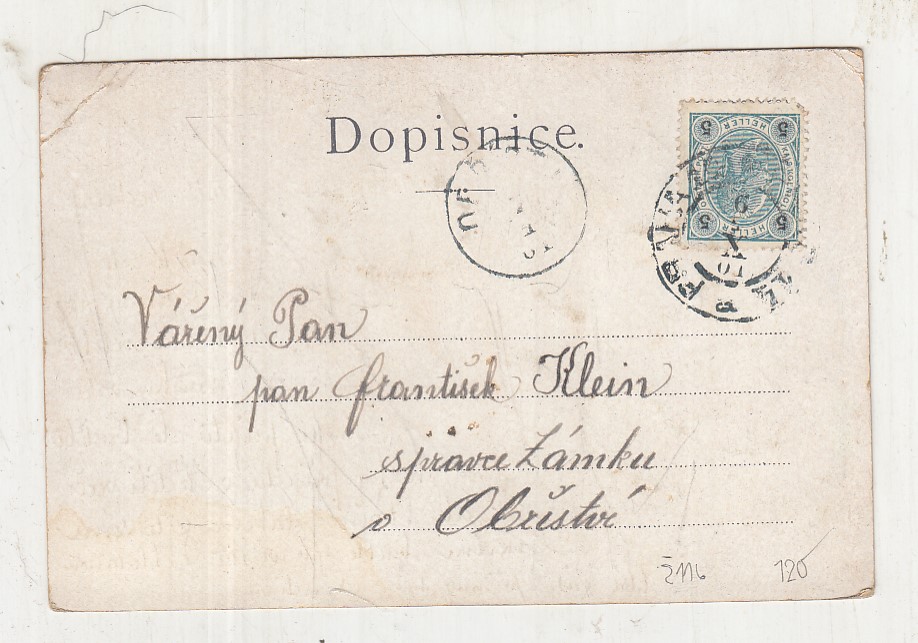 Dopisnice.
5 5
HELLER
5 5
HELLER
Vářený Pan
pan František Klein
správce Zámku
v Obříství
2116 120